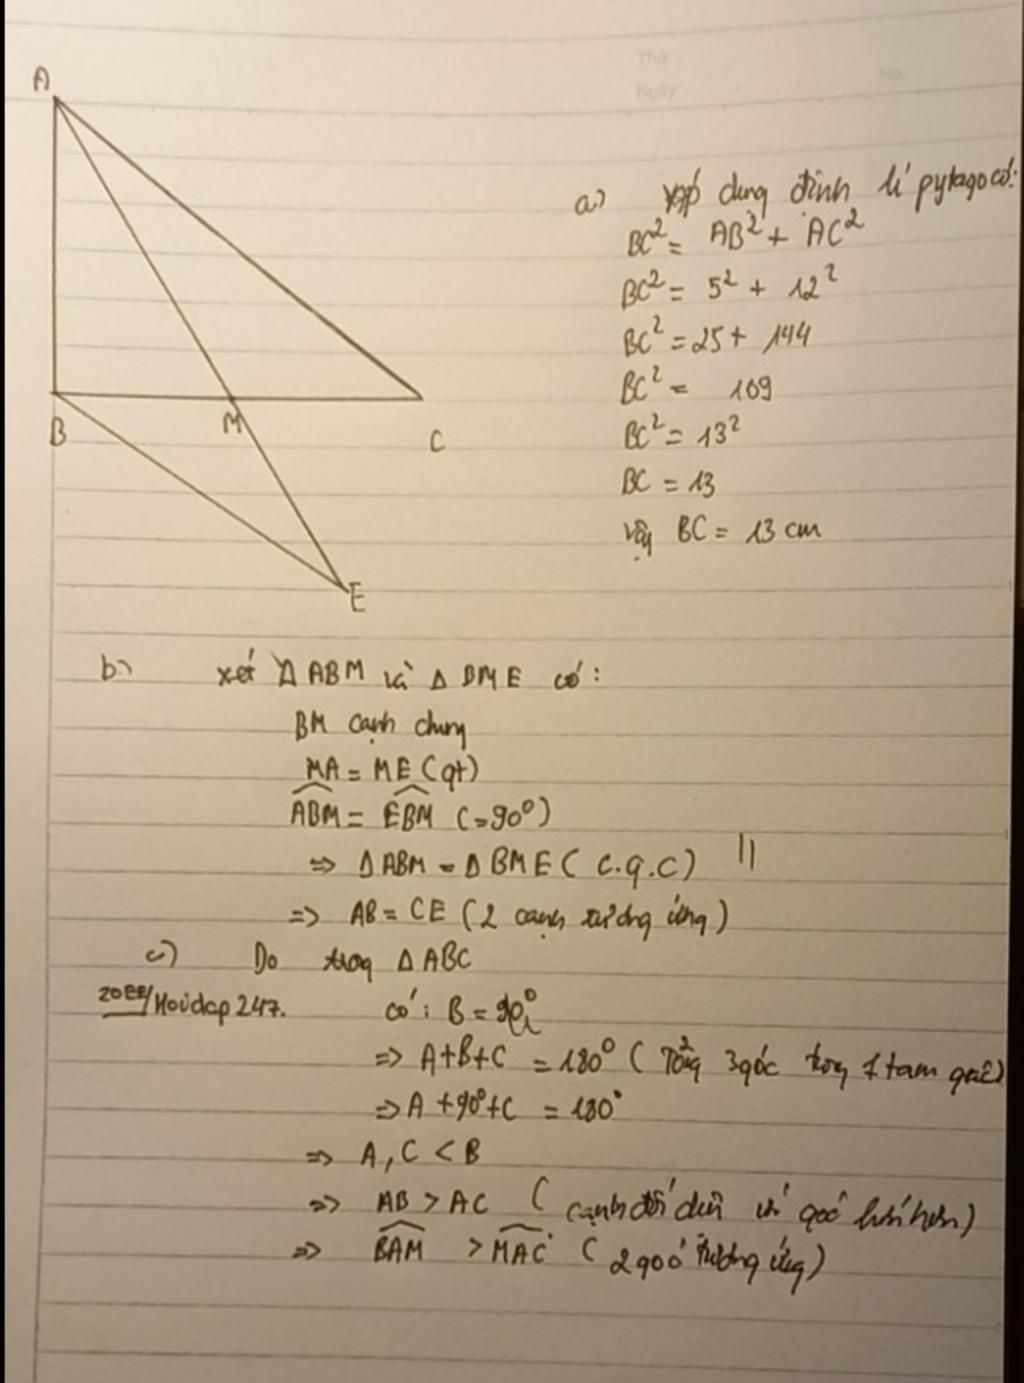 Thứ
Ngày
No.
A
B
M
C
E
a) áp dụng định lí pytago có:
BC² = AB² + AC²
BC² = 5² + 12²
BC² = 25 + 144
BC² = 169
BC² = 13²
BC = 13
vậy BC = 13 cm
b) xét Δ ABM và Δ BME có:
BM cạnh chung
MA = ME (gt)
ABM = EBM (=90°)
=> Δ ABM = Δ BME (c.g.c)
=> AB = CE (2 cạnh tương ứng)
c) Do trong Δ ABC
2011/Hoidap247.
có: B = 90°
=> A+B+C = 180° (Tổng 3 góc trong 1 tam giác)
=> A + 90° + C = 180°
=> A, C < B
=> AB > AC (cạnh đối diện với góc lớn hơn)
=> BAM > MAC (2 góc tương ứng)